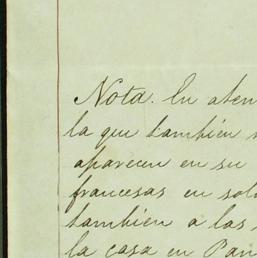 Nota. En aten
la que tambien
aparecen en su
francesas en sol
tambien a las
la casa en Par